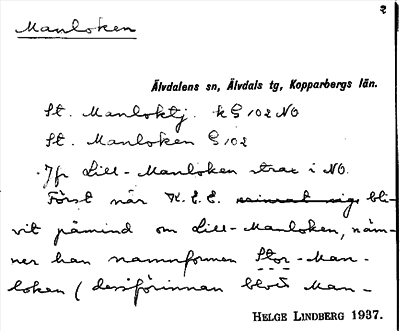 2
Manloken
Älvdalens sn, Älvdals tg, Kopparbergs län.
St. Manloktj. kG 102 NO
St. Manloken G 102
Jfr Lill-Manloken strax i NO.
Först när K.E.E. bli-
vit påmind om Lill-Manloken, näm-
ner han namnformen Stor-Man-
loken (dessförinnan blott Man-
HELGE LINDBERG 1937.